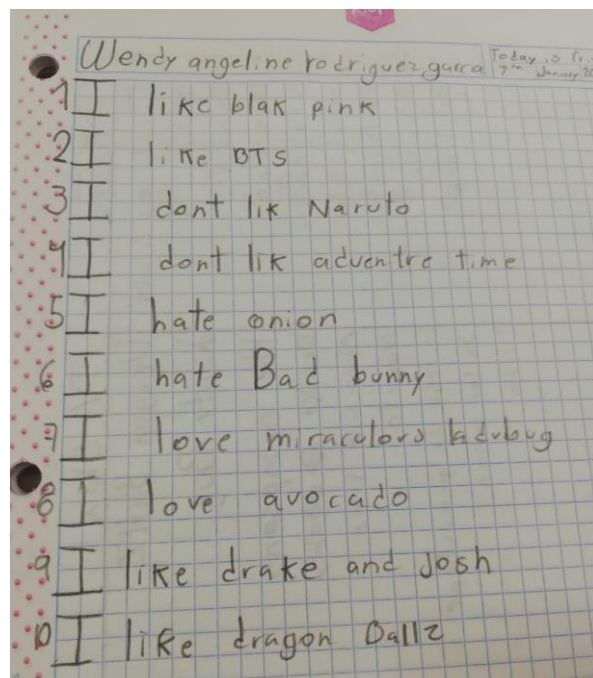 Wendy angeline rodriguez garca
Today is Fri
7th January 20
1 I like blak pink
2 I like BTS
3 I dont lik Naruto
4 I dont lik adventre time
5 I hate onion
6 I hate Bad bunny
7 I love miraculors ladybug
8 I love avocado
9 I like drake and Josh
10 I like dragon Ballz